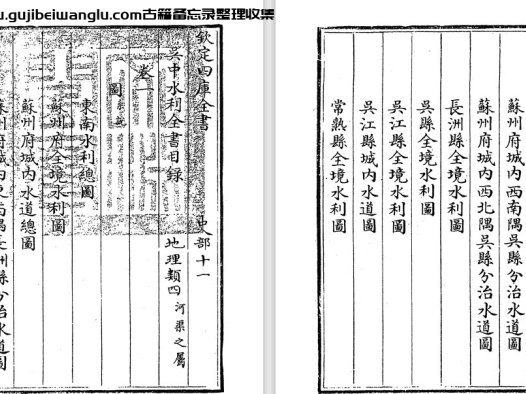 u.gujibeiwanglu.com古籍备忘录整理收集
欽定四庫全書 史部十一
吳中水利全書目錄 地理類四 河渠之屬
卷一
圖
東南水利總圖
蘇州府全境水利圖
蘇州府城內水道總圖
蘇州府城內東南隅長洲縣分治水道圖
蘇州府城內西南隅吳縣分治水道圖
蘇州府城內西北隅吳縣分治水道圖
長洲縣全境水利圖
吳縣全境水利圖
吳江縣全境水利圖
吳江縣城內水道圖
常熟縣全境水利圖